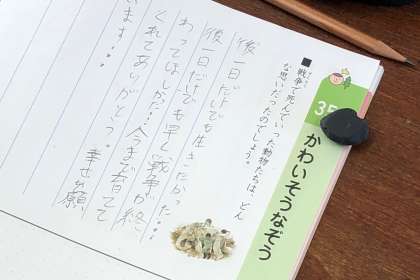 35
かわいそうなぞう
■戦争で死んでいった動物たちは、どん
な思いだったのでしょう。
後一日だけでも生きたかった…
後一日だけでも早く戦争が終
わってほしかった…今まで育てて
くれてありがとう。幸せを願
います…。